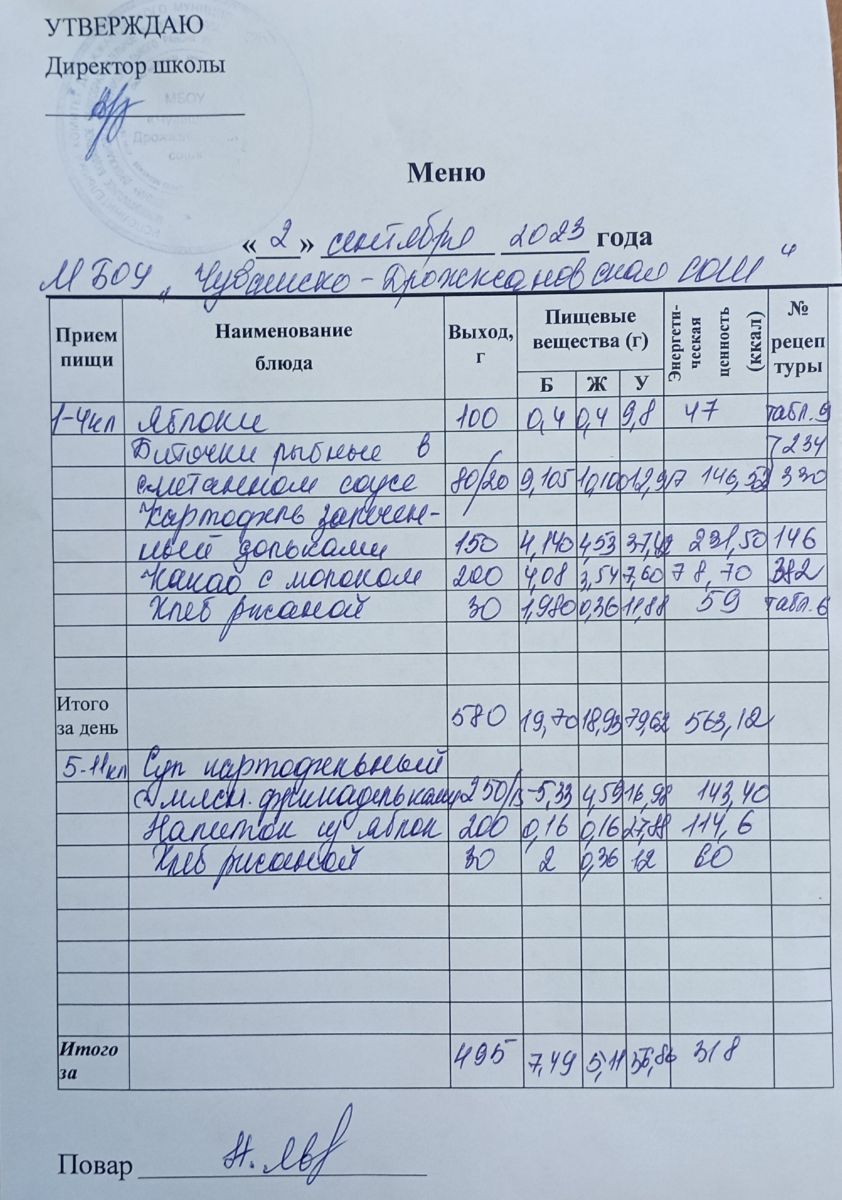 УТВЕРЖДАЮ
Директор школы
МБОУ
Меню
« 2 » сентября 2023 года
МБОУ „Чувашско-Дрожжановская СОШ"
Прием пищи Наименование блюда Выход, г Пищевые вещества (г) Энергети-ческая ценность (ккал) № рецептуры
Б Ж У
1-4кл Яблоки 100 0,4 0,4 9,8 47 табл. 9
Биточки рыбные в 7234
сметанном соусе 80/20 9,105 10,100 12,97 146,52 330
Картофель запечен-
ный дольками 150 4,140 4,53 37,42 231,50 146
Какао с молоком 200 4,08 3,54 7,60 78,70 382
Хлеб ржаной 30 1,980 0,36 11,88 59 табл. 6
Итого за день 580 19,70 18,93 79,62 563,12
5-11кл Суп картофельный
с мясн. фрикадельками 250/15 5,33 4,59 16,98 143,40
Напиток из яблок 200 0,16 0,16 27,88 114,6
Хлеб ржаной 30 2 0,36 12 60
Итого за 495 7,49 5,11 56,86 318
Повар